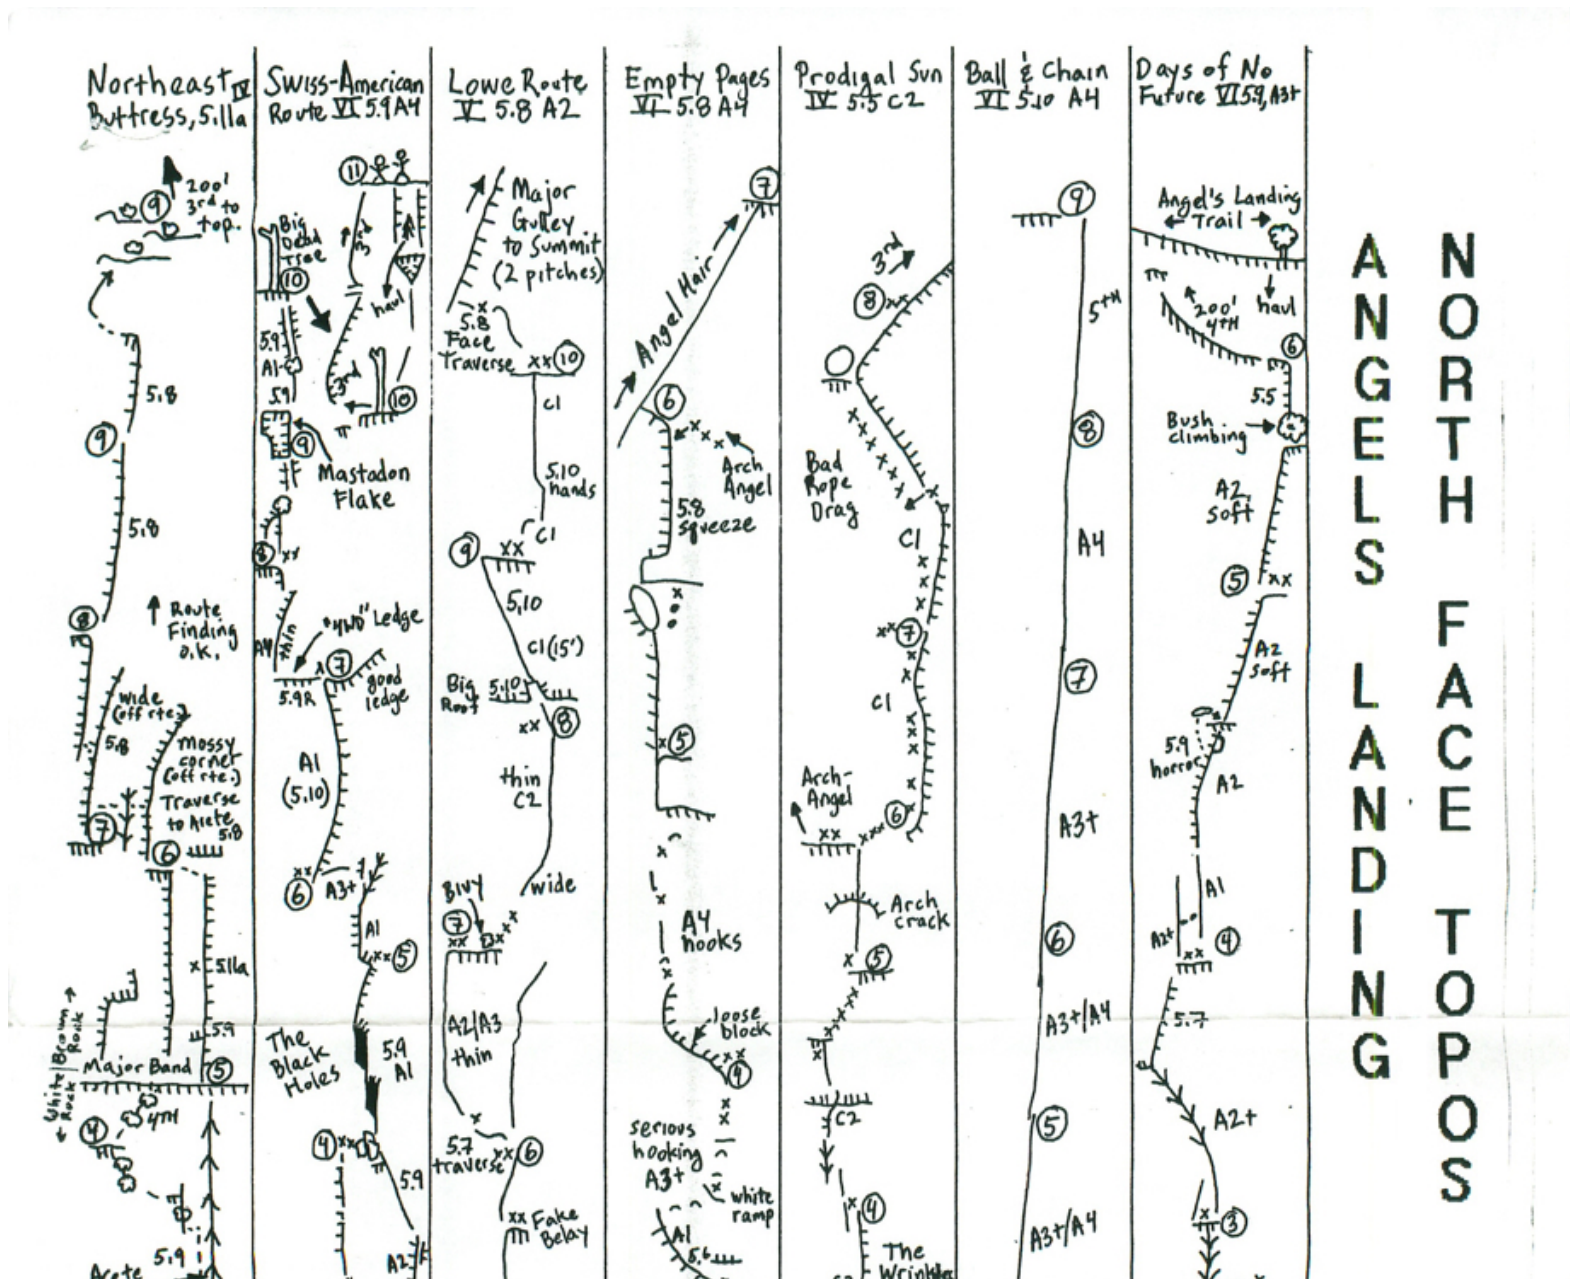 Northeast IV
Buttress, 5.11a
200'
3rd to
top.
9
5.8
9
5.8
8
Route
Finding
o.k.
wide
(off rte.)
5.8
Mossy
corner
(off rte.)
Traverse
to Arete
5.8
7
6
x 5.11a
5.9
White/Brown
Rock Rock
Major Band
5
4TH
4
5.9
Arete
Swiss-American
Route VI 5.9 A4
11
Big
Dead
Tree
3rd
haul
10
5.9
A1
5.9
3rd
10
9
Mastodon
Flake
8 xx
A4
thin
"4WD" Ledge
x 7
5.9R
good
ledge
A1
(5.10)
xx
6
A3+
A1
xx 5
The
Black
Holes
5.9
A1
4 xx
5.9
A2
Lowe Route
V 5.8 A2
Major
Gulley
to Summit
(2 pitches)
x
5.8
Face
Traverse
xx 10
C1
5.10
hands
C1
9 xx
5.10
C1 (15')
Big
Roof
5.10
xx 8
thin
C2
wide
Bivy
7
xx
xxxx
A2/A3
thin
x
5.7
traverse
xx 6
xx Fake
Belay
Empty Pages
VI 5.8 A4
7
Angel Hair
6
xxx
Arch
Angel
5.8
squeeze
x
x 5
x
x
A4
hooks
x
loose
block
xx
4
x
x
serious
hooking
A3+
x
x
white
ramp
A1
5.6
Prodigal Sun
IV 5.5 C2
3rd
8 xx
Bad
Rope
Drag
C1
xx 7
C1
Arch-
Angel
6
xx xxx
Arch
crack
x 5
x
C2
x 4
The
Wrinkles
Ball & Chain
VI 5.10 A4
9
5TH
8
A4
7
A3+
6
A3+/A4
5
A3+/A4
Days of No
Future VI 5.9, A3+
Angel's Landing
Trail
haul
200'
4TH
6
5.5
Bush
climbing
A2
soft
5 xx
A2
soft
x
5.9
horror
A2
A1
A2+
4
xx
5.7
A2+
x 3
ANGELS LANDING
NORTH FACE TOPOS